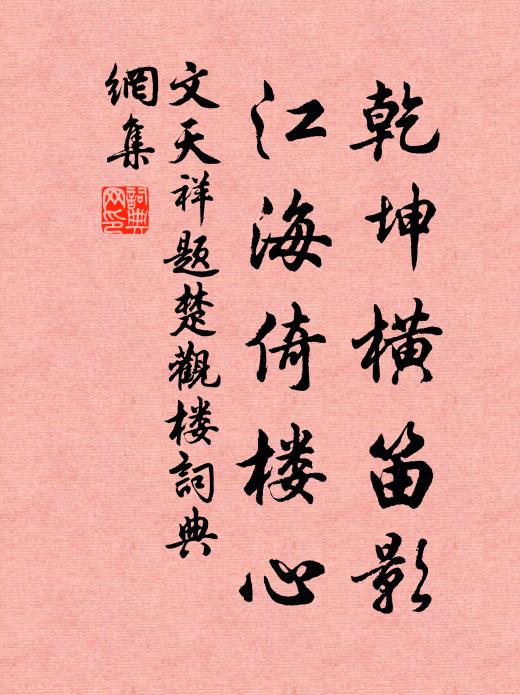 乾坤橫笛影
江海倚楼心
文天祥题楚觀楼詞典
網集
詞典网印